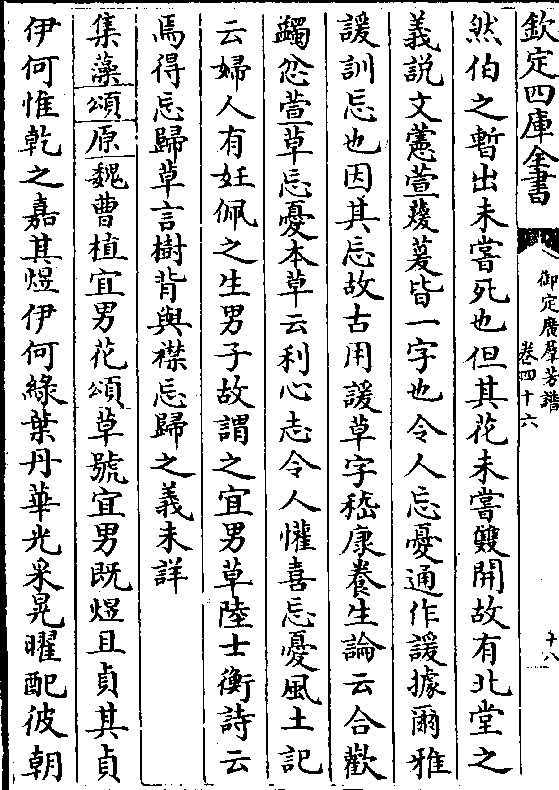 欽定四庫全書
御定廣羣芳譜
卷四十六
十八
然伯之暫出未嘗死也但其花未嘗雙開故有北堂之
義說文藼萱蕿萲皆一字也令人忘憂通作諼據爾雅
諼訓忘也因其忘故古用諼草字嵇康養生論云合歡
蠲忿萱草忘憂本草云利心志令人懽喜忘憂風土記
云婦人有妊佩之生男子故謂之宜男草陸士衡詩云
焉得忘歸草言樹背與襟忘歸之義未詳
集藻頌原魏曹植宜男花頌草號宜男既煜且貞其貞
伊何惟乾之嘉其煜伊何綠葉丹華光采晃曜配彼朝